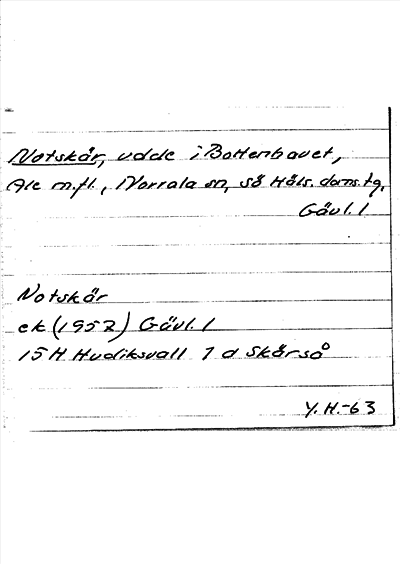 Notskär, udde i Bottenhavet,
Ale m.fl., Norrala sn, Sö Häls. doms.tg,
Gävl. l
Notskär
ek (1952) Gävl. l
15H Hudiksvall 1 d Skärså
Y.H.-63